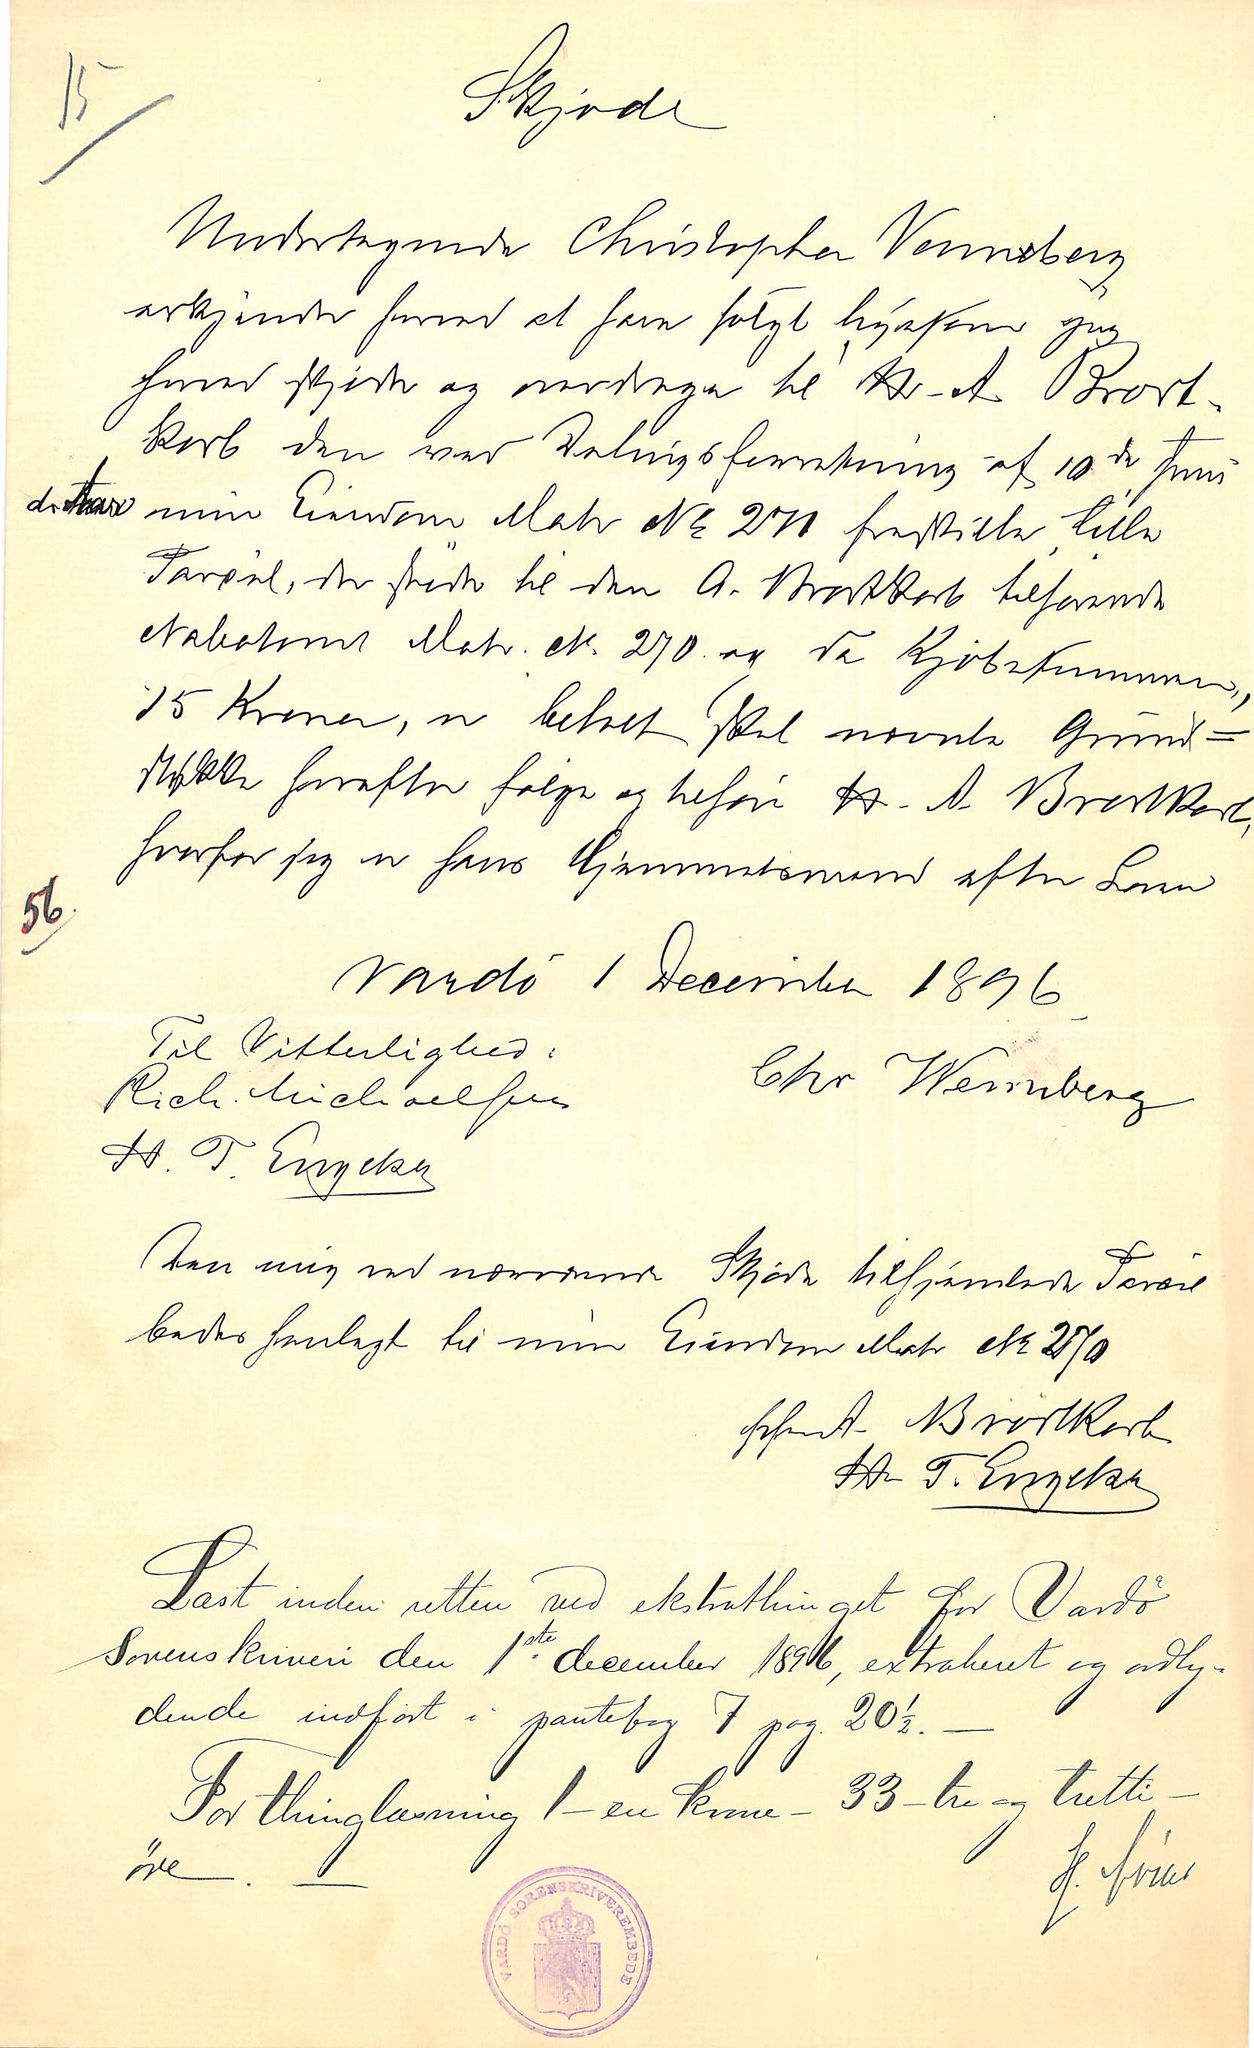 15
Skjøde
Undertegnede Christopher Vennsberg
erkjender herved at have solgt ligesom jeg
herved skjøder og overdrager til H. A. Brodt-
korb den ved Delingsforretning af 10de Juni
d. Aar min Eiendom Matr № 271 fraskilte lille
Parcel, der støder til den A. Brodtkorb tilhørende
Nabotomt Matr. №. 270. og da Kjøbesummen,
15 Kroner, er betalt skal nævnte Grund=
stykke herefter følge og tilhøre H. A. Brodtkorb,
hvorfor jeg er hans Hjemmelsmand efter Loven
56.
Vardö 1 December 1896
Til Vitterlighed:
Chr Wennberg
Rich. Michaelsen
H. T. Engelsen
Den mig ved nærværende Skjøde tilhjemlede Parcel
bedes henlagt til min Eiendom Matr № 270
A. Brodtkorb
H. T. Engelsen
Læst inden retten ved ekstrathinget for Vardö
Sorenskriveri den 1ste december 1896, extraheret og ordly-
dende indført i pantebog 7 pag. 20½. —
For thinglæsning 1 – en krone – 33 – tre og tretti –
öre. —
VARDÖ SORENSKRIVEREMBEDE